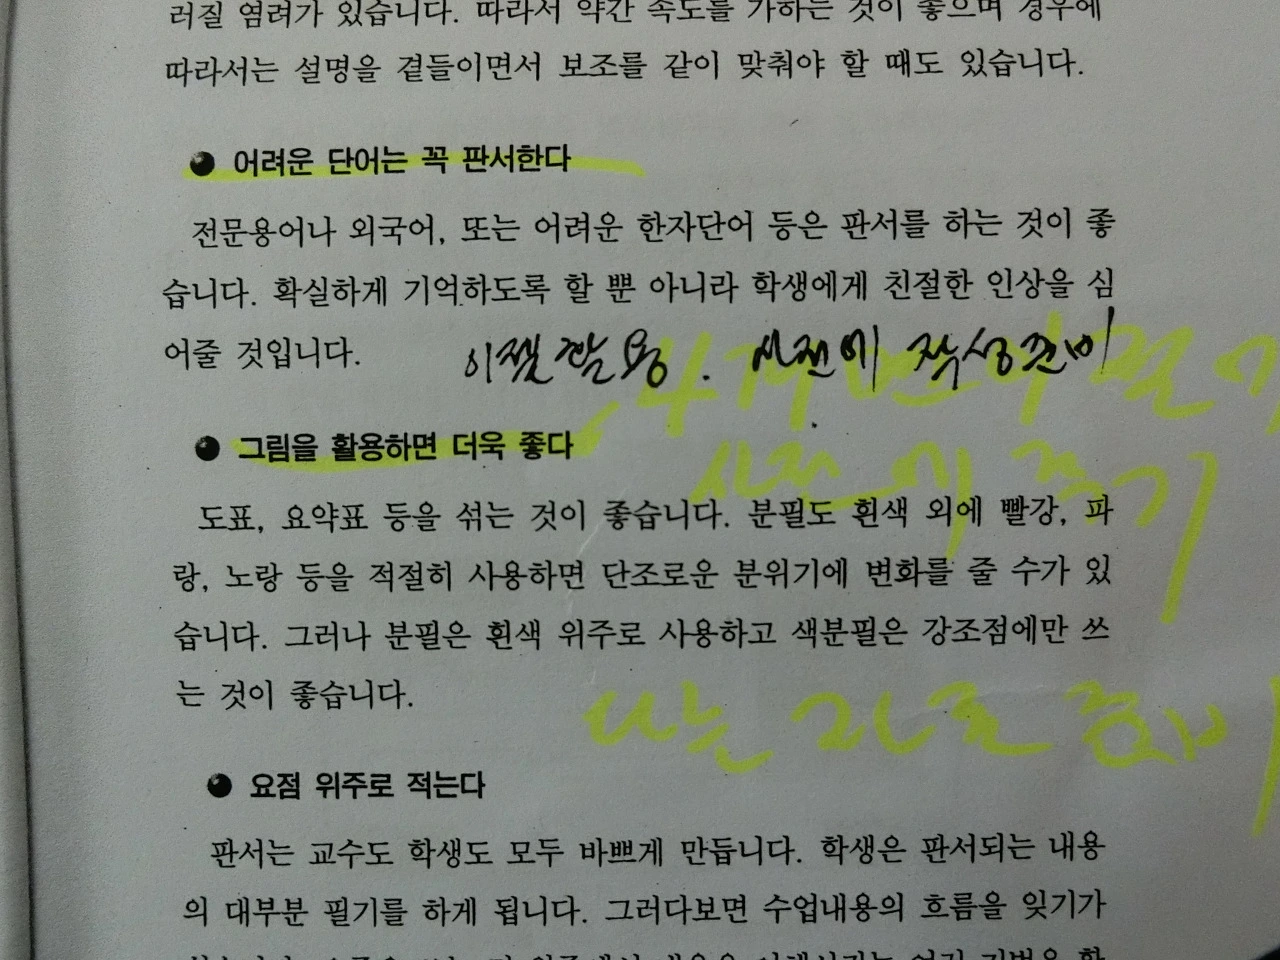 러질 염려가 있습니다. 따라서 약간 속도를 가하는 것이 좋으며 경우에
따라서는 설명을 곁들이면서 보조를 같이 맞춰야 할 때도 있습니다.
어려운 단어는 꼭 판서한다
전문용어나 외국어, 또는 어려운 한자단어 등은 판서를 하는 것이 좋
습니다. 확실하게 기억하도록 할 뿐 아니라 학생에게 친절한 인상을 심
어줄 것입니다.
이젤활용. 사전에 작성준비
그림을 활용하면 더욱 좋다
사전에 주기
도표, 요약표 등을 섞는 것이 좋습니다. 분필도 흰색 외에 빨강, 파
랑, 노랑 등을 적절히 사용하면 단조로운 분위기에 변화를 줄 수가 있
습니다. 그러나 분필은 흰색 위주로 사용하고 색분필은 강조점에만 쓰
는 것이 좋습니다.
나는 자료 준비
요점 위주로 적는다
판서는 교수도 학생도 모두 바쁘게 만듭니다. 학생은 판서되는 내용
의 대부분 필기를 하게 됩니다. 그러다보면 수업내용의 흐름을 잊기가